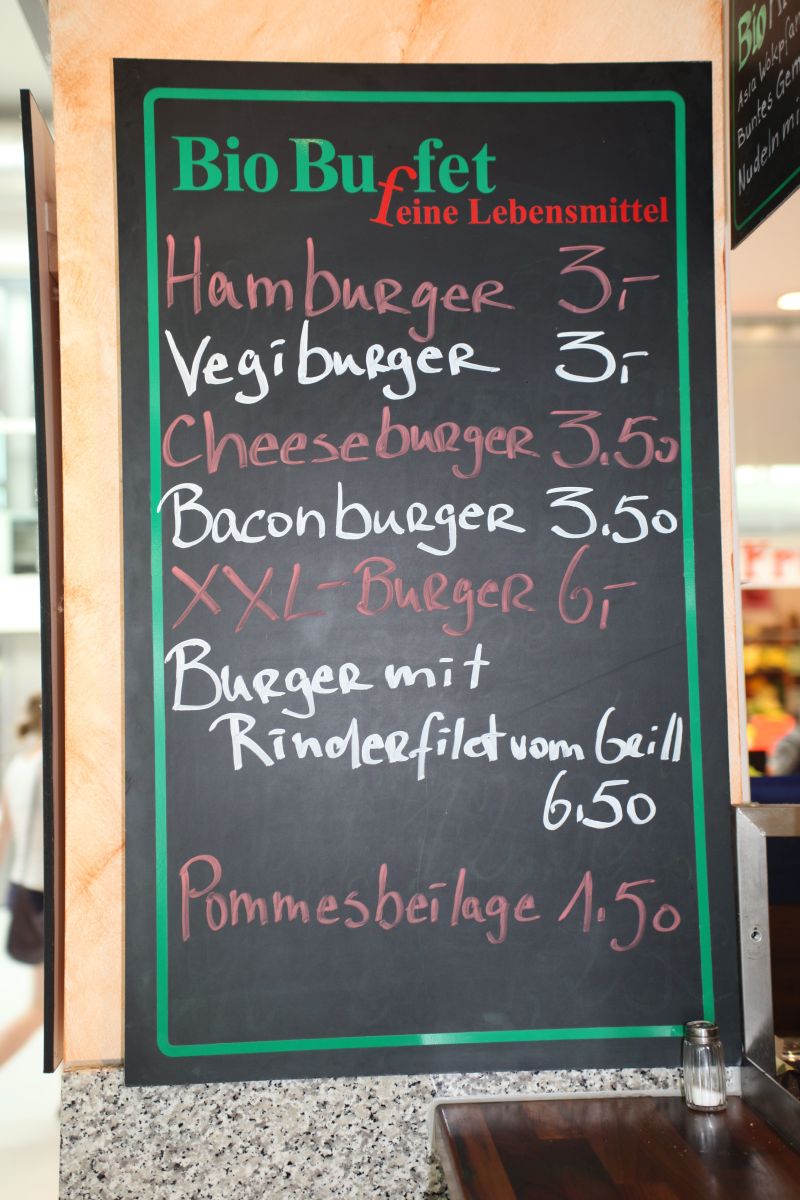 Bio Buffet
feine Lebensmittel
Hamburger 3,-
Vegiburger 3,-
Cheeseburger 3.50
Baconburger 3.50
XXL-Burger 6,-
Burger mit
Rinderfilet vom Grill
6.50
Pommesbeilage 1.50
Bio
Asia Wokpfan
Buntes Gem
Nudeln mi